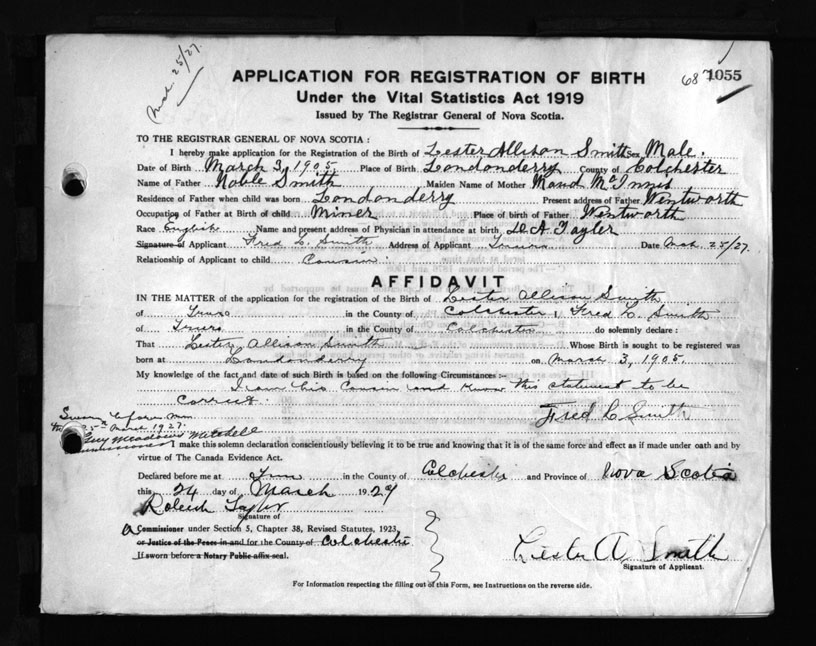 Mch 25/27.
APPLICATION FOR REGISTRATION OF BIRTH
68 1055
Under the Vital Statistics Act 1919
Issued by The Registrar General of Nova Scotia.
TO THE REGISTRAR GENERAL OF NOVA SCOTIA :
I hereby make application for the Registration of the Birth of Lester Allison Smith Sex Male.
Date of Birth March 3, 1905. Place of Birth Londonderry County of Colchester
Name of Father Noble Smith Maiden Name of Mother Maud McInnis
Residence of Father when child was born Londonderry Present address of Father Wentworth
Occupation of Father at Birth of child Miner Place of birth of Father Wentworth
Race English Name and present address of Physician in attendance at birth D A Tayler
Signature of Applicant Fred C. Smith Address of Applicant Truro Date Mch. 25/27.
Relationship of Applicant to child Cousin.
AFFIDAVIT
IN THE MATTER of the application for the registration of the Birth of Lester Allison Smith
of Truro in the County of Colchester I, Fred C. Smith
of Truro in the County of Colchester do solemnly declare :
That Lester Allison Smith Whose Birth is sought to be registered was
born at Londonderry on March 3, 1905.
My knowledge of the fact and date of such Birth is based on the following Circumstances :-
I am his Cousin and know this statement to be
correct.
Fred C Smith
Sworn before me
this 25th March 1927.
Guy Meadows Mitchell
Commissioner
I make this solemn declaration conscientiously believing it to be true and knowing that it is of the same force and effect as if made under oath and by
virtue of The Canada Evidence Act.
Declared before me at Truro in the County of Colchester and Province of Nova Scotia
this 24 day of March 1927
Signature of
A Commissioner under Section 5, Chapter 38, Revised Statutes, 1923,
or Justice of the Peace in and for the County of Colchester
If sworn before a Notary Public affix seal.
Lester A Smith
Signature of Applicant.
For Information respecting the filling out of this Form, see Instructions on the reverse side.